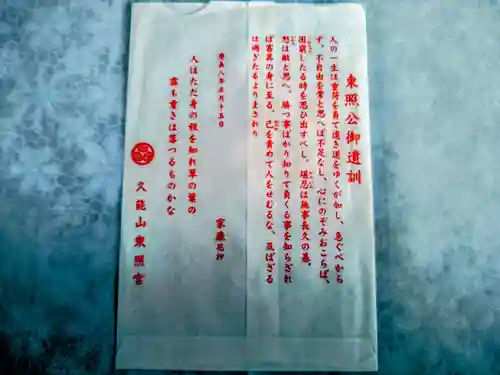 東照公御遺訓
人の一生は重荷を負て遠き道をゆくが如し、急ぐべから
ず、不自由を常と思へば不足なし、心にのぞみおこらば、
困窮したる時を思ひ出すべし。堪忍は無事長久の基、
怒は敵と思へ。勝つ事ばかり知りて負くる事を知らざれ
ば害其の身に至る。己を責めて人をせむるな、及ばざる
は過ぎたるよりまされり
慶長八年正月十五日
家康花押
人はただ身の程を知れ草の葉の
露も重きは落つるものかな
久能山東照宮